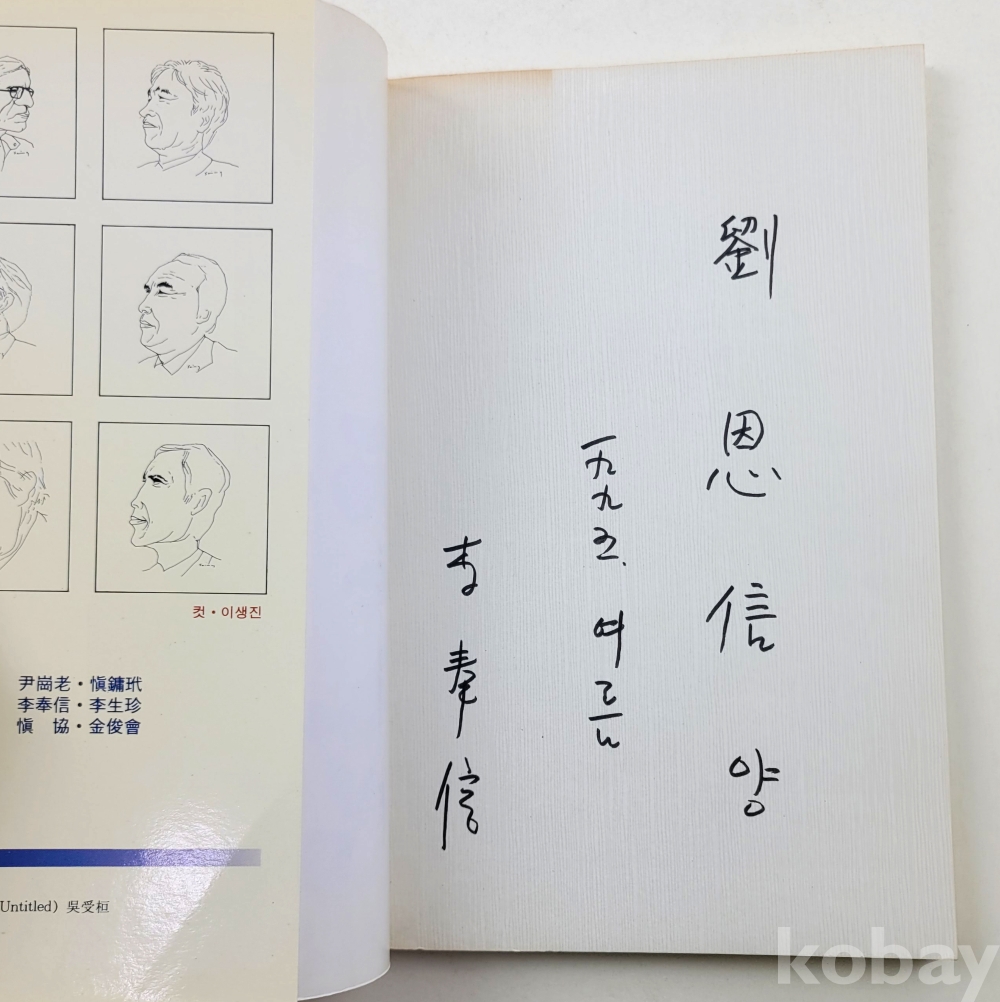 컷·이생진
尹崗老·愼鏞玳
李奉信·李生珍
愼 協·金俊會
Untitled) 吳受桓
劉 恩 信 양
一九九五. 여름
李 奉 信
kobay